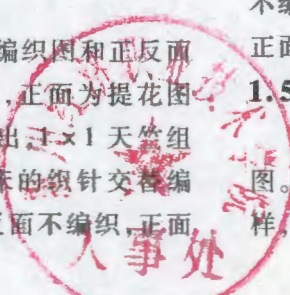 编织图和正反面
,正面为提花图
出,1×1 天竺组
床的织针交替编
反面不编织,正面
不编
正面
1.5
图。
样,
人事处